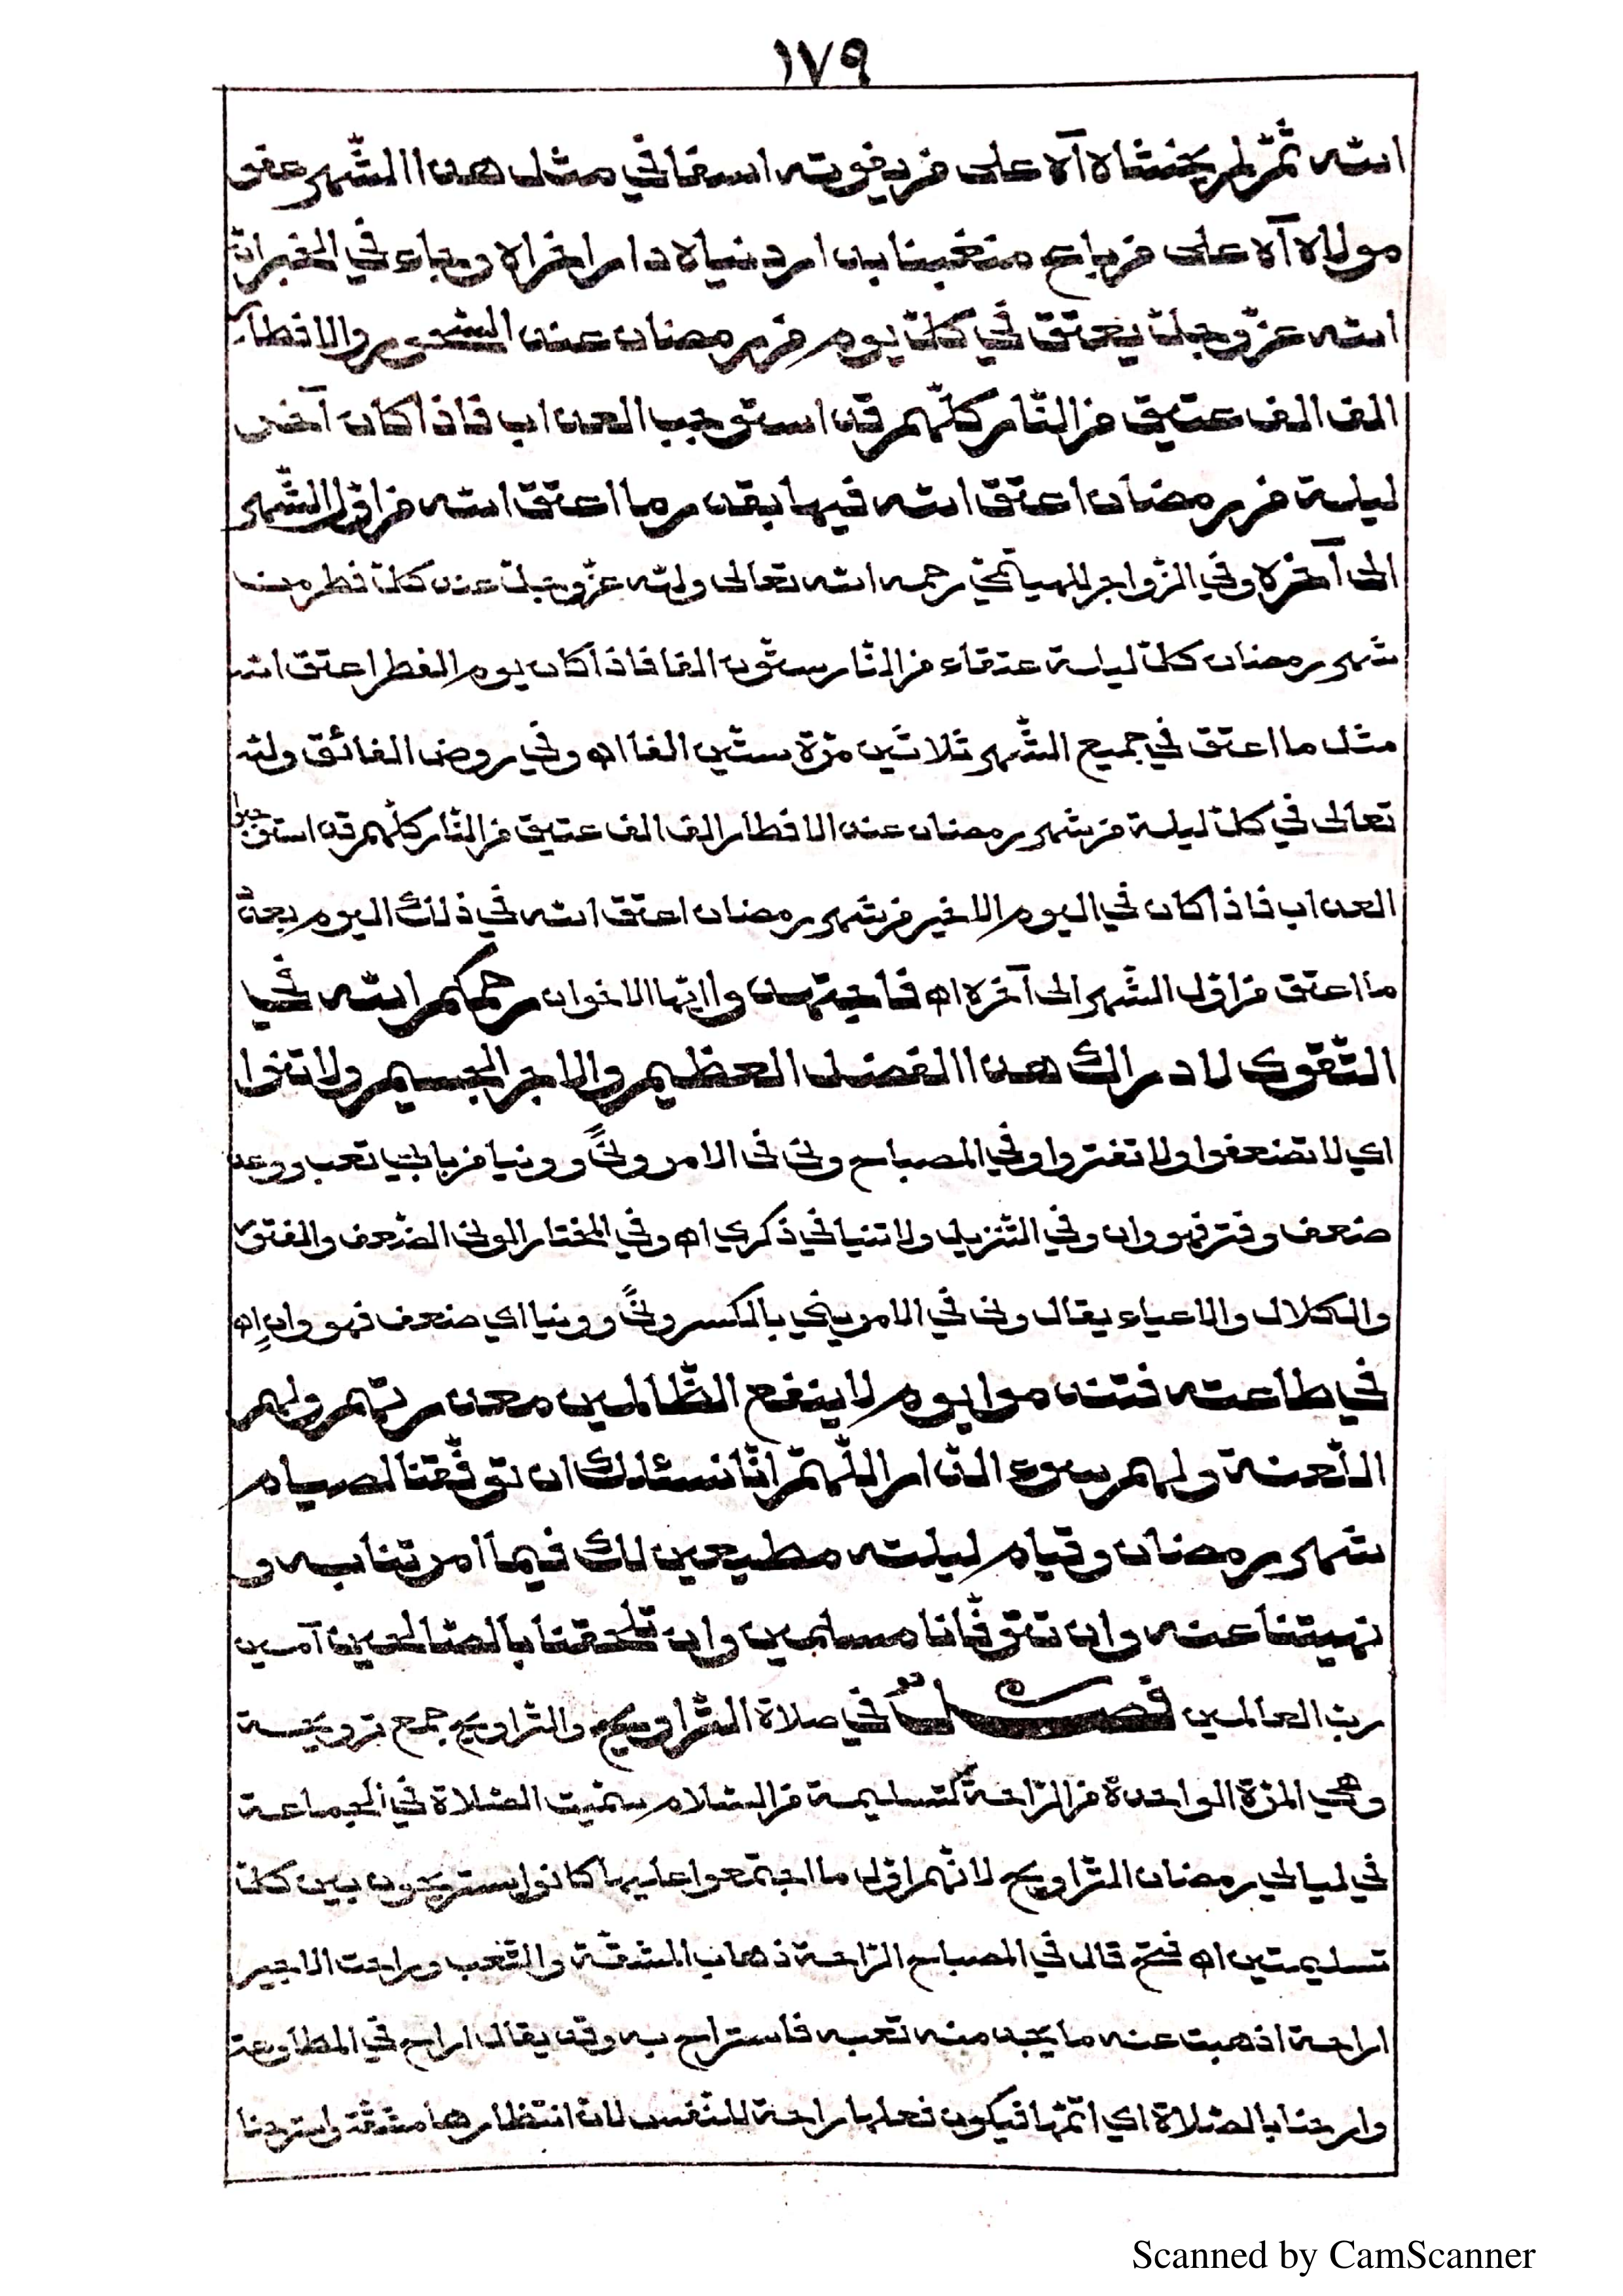 ١٧٩
الله ثمّ لم يخشاه آه على من يفوته اسفا في مثل هذا الشّهر عفو
مولاه آه على من باع متغبنا بدار دنياه دار اخراه وجاء في الخبر انّ
الله عزّ وجلّ يعتق في كلّ يوم من رمضان عند السّحور والافطار
الف الف عتيق من النّار كلّهم قد استوجب العذاب فاذا كان آخر
ليلة من رمضان اعتق الله فيها بقدر ما اعتق الله من اوّل الشّهر
الى آخره وفي الزّواجر للهيتمي رحمه الله تعالى ولله عزّ وجلّ عند كلّ فطر من
شهر رمضان كلّ ليلة عتقاء من النّار ستّون الفا فاذا كان يوم الفطر اعتق الله
مثل ما اعتق في جميع الشّهر ثلاثين مرّة ستّين الفا اه وفي روض الفائق ولله
تعالى في كلّ ليلة من شهر رمضان عند الافطار الف الف عتيق من النّار كلّهم قد استوجبوا
العذاب فاذا كان في اليوم الاخير من شهر رمضان اعتق الله في ذلك اليوم بعدّ
ما اعتق من اوّل الشّهر الى آخره اه فاجتهدوا ايّها الاخوان رحمكم الله في
التّقوى لادراك هذا الفضل العظيم والاجر الجسيم ولا تنوا
اي لا تضعفوا ولا تفتروا وفي المصباح ونى في الامر ونًى وونيا من بابي تعب ووعد
ضعف وفتر فهو وان وفي التّنزيل ولا تنيا في ذكري اه وفي المختار الونى الضّعف والفتور
والكلال والاعياء يقال ونى في الامر يني بالكسر ونًى وونيا اي ضعف فهو وانٍ اه
في طاعته فتندموا يوم لا ينفع الظّالمين معذرتهم ولهم
اللّعنة ولهم سوء الدّار اللّهمّ انّا نسئلك ان توفّقنا لصيام
شهر رمضان وقيام ليلته مطيعين لك فيما امرتنا به و
نهيتنا عنه وان تتوفّانا مسلمين وان تلحقنا بالصّالحين آمين
ربّ العالمين فصل في صلاة التّراويح والتّراويح جمع ترويحة
وهي المرّة الواحدة من الرّاحة كتسليمة من السّلام سمّيت الصّلاة في الجماعة
في ليالي رمضان التّراويح لانّهم اوّل ما اجتمعوا عليها كانوا يستريحون بين كلّ
تسليمتين اه فتح قال في المصباح الرّاحة ذهاب المشقّة والتّعب وراحت الاجير
اراحة اذهبت عنه ما يجد منه تعبه فاستراح به وقد يقال اراح في المطاوعة
وارحنا بالصّلاة اي اقمها فيكون فعلها راحة للنّفس لانّ انتظارها مشقّة واسترحنا
Scanned by CamScanner